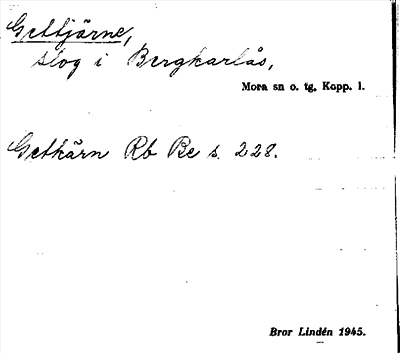 Gettjärne,
slog i Bergkarlås,
Mora sn o. tg. Kopp. l.
Getkärn Rb Be s. 228.
Bror Lindén 1945.